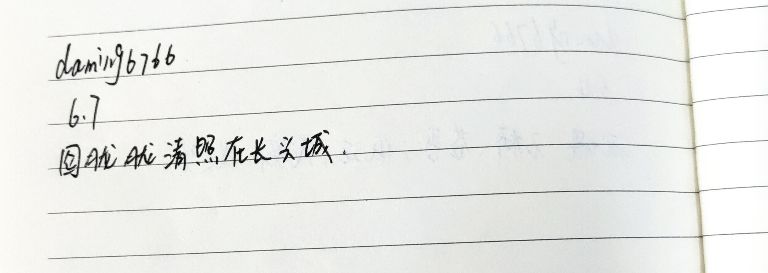 daming6766
6.7
圆胧胧清照在长头城.